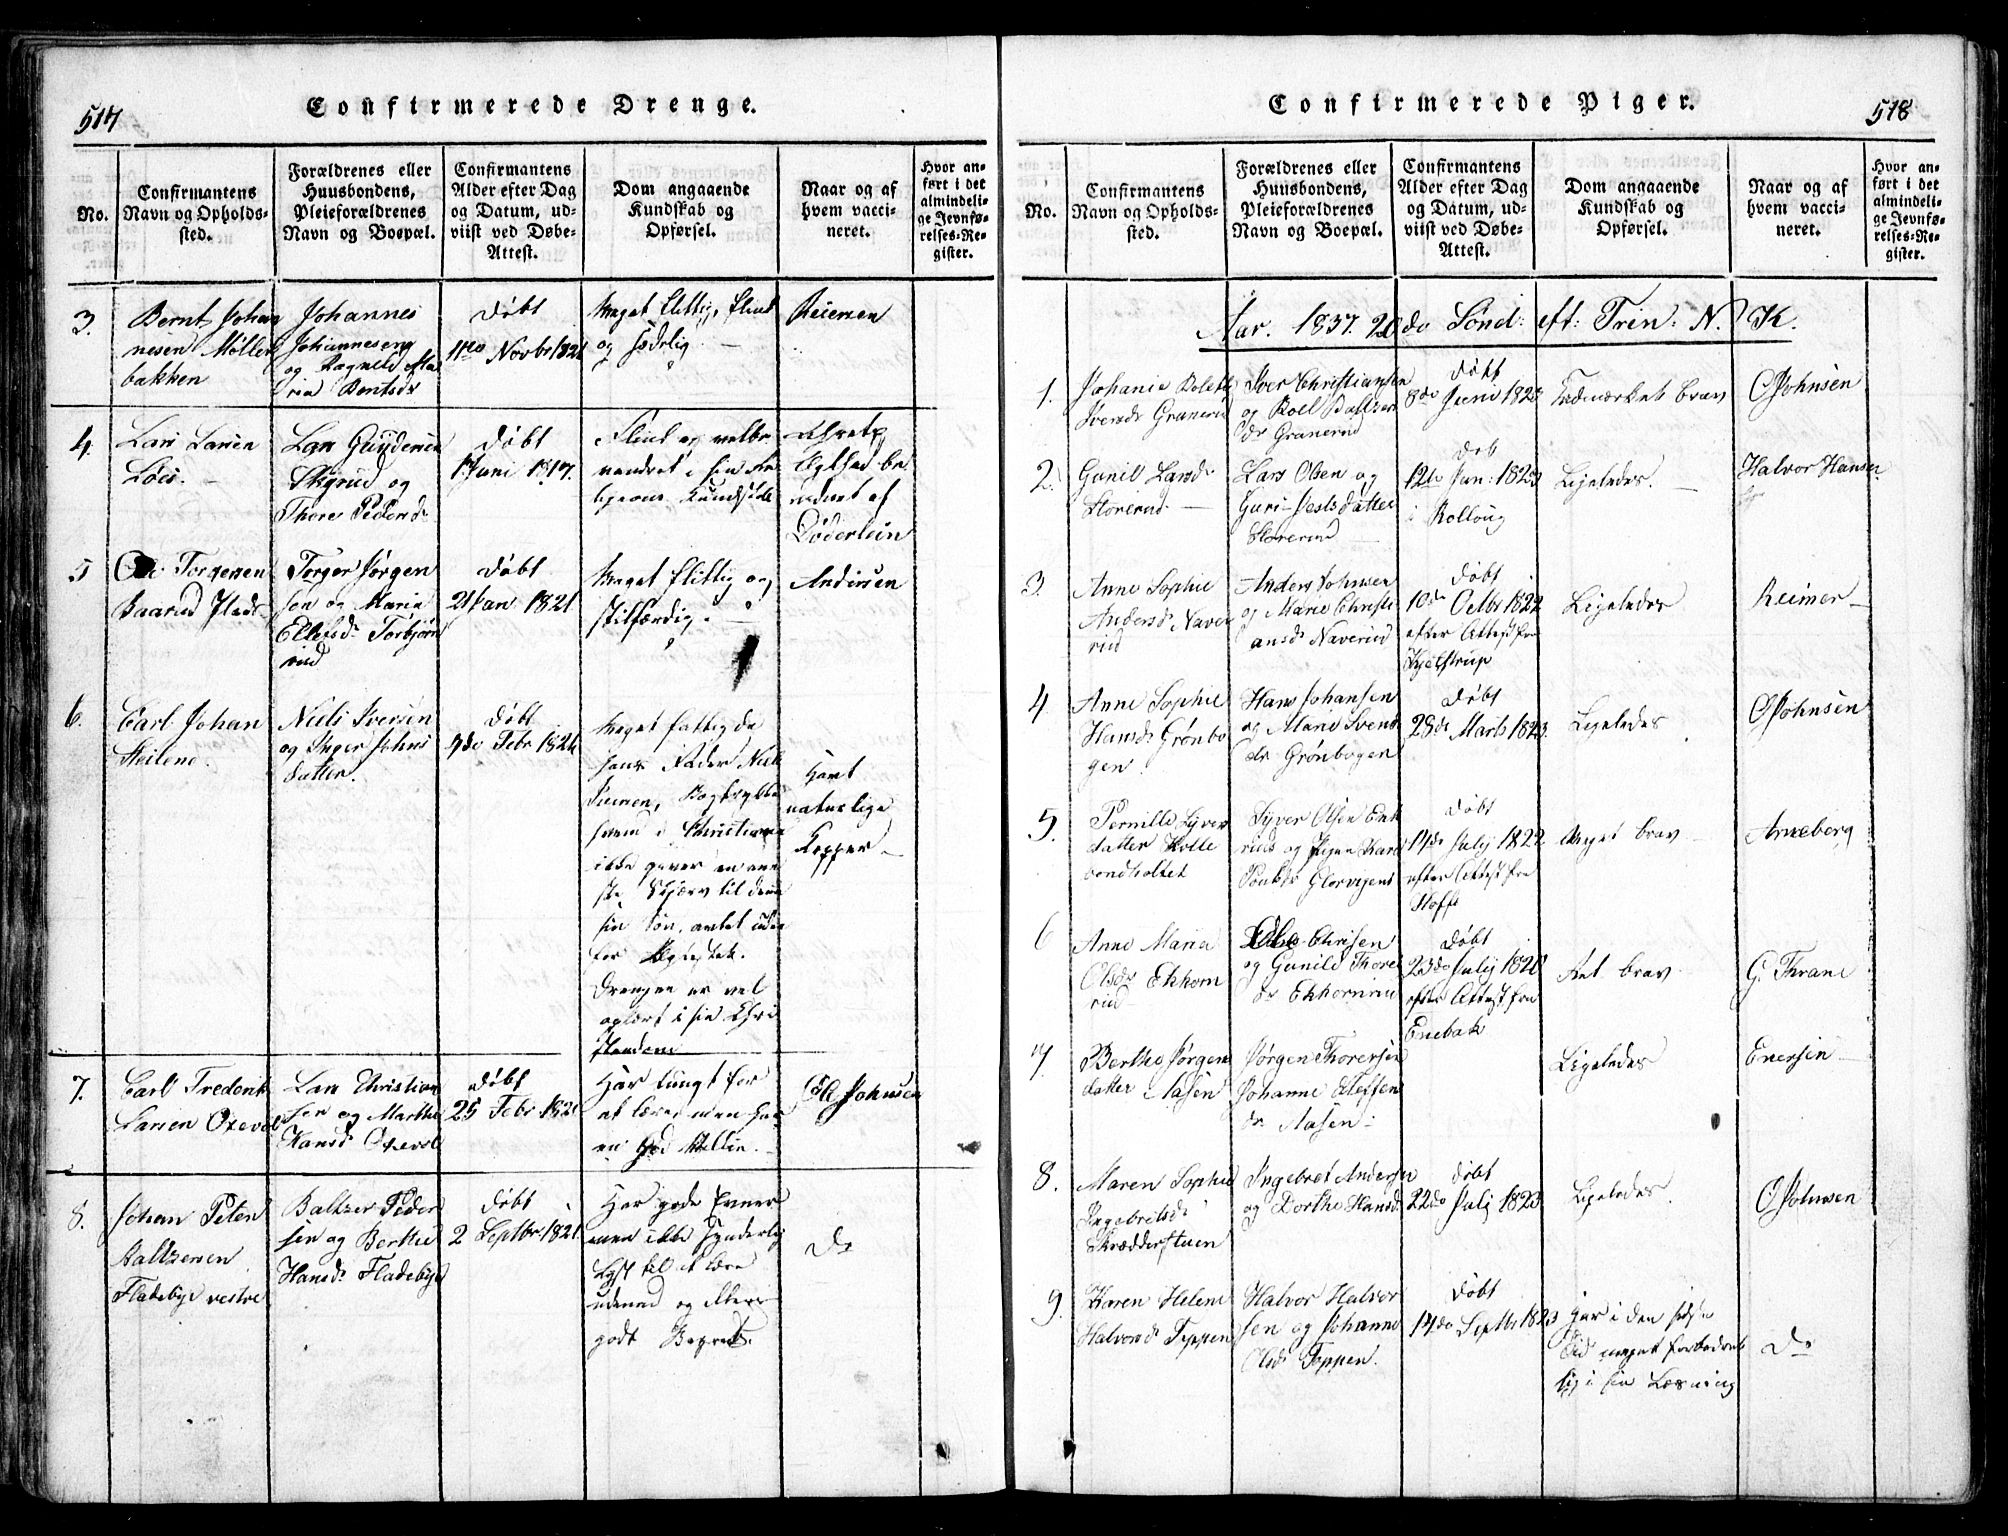 517
Confirmerede Drenge.
No.
Confirmantens
Navn og Opholds-
sted.
Forældrenes eller
Huusbondens,
Pleieforældrenes
Navn og Boepæl.
Confirmantens
Alder efter Dag
og Datum, ud-
viist ved Døbe-
Attest.
Dom angaaende
Kundskab og
Opførsel.
Naar og af
hvem vacci-
neret.
Hvor an-
ført i det
almindeli-
ge Jevnfø-
relses-Re-
gister.
3.
Bernt Johan
nesen Møller
bakken
Johannes
Johannesen
og Ragnild Ma
ria Berntsdr
Døbt
11te Novbr 1821
Meget flittig, flink
og sædelig.
Reiersen
4.
Lars Larsen
Løes.
Lars Gundersen
Skyrud og
Thore Pedersd.
Døbt
1 Juni 1817.
Flink og velbe
vandret i sin Re
ligions Kundskab
Døderlein
5
Ole Torgersen
Baarud Plads
Torger Jørgen
sen og Maria
Ellefsd. Torbjørn
rud
Døbt
21 Jan 1821.
Meget flittig og
stilfærdig.
Andersen
6.
Carl Johan
Heilene.
Niels Iversen
og Inger Johns
datter.
Døbt
7de Febr 1821
Meget fattig da
hans Fader Niels
Iversen, Bogtrykker
svend i Christiania
ikke giver en ene
ste Skjærv til denne
sin Søn, avlet uden
for Ægteskab.
Drengen er vel
oplært i sin Chri
stendom
Havt
naturlige
Kopper
7.
Carl Frederik
Larsen Oxevol
Lars Christian
sen og Marthe
Hansd. Oxevol
Døbt
25 Febr 1821
Har tungt for
at lære men har
en god Villie.
Ole Johnsen
8.
Johan Peter
Baltzersen
Fladebye vestre
Baltzer Peder
sen og Berthe
Hansd. Fladebye
Døbt
2 Septbr 1821.
Har gode Evner
men ikke synderlig
Lyst til at lære
udenad og ellers
godt Begreb.
Do
518
Confirmerede Piger.
No.
Confirmantens
Navn og Opholds-
sted.
Forældrenes eller
Huusbondens,
Pleieforældrenes
Navn og Boepæl.
Confirmantens
Alder efter Dag
og Datum, ud-
viist ved Døbe-
Attest.
Dom angaaende
Kundskab og
Opførsel.
Naar og af
hvem vacci-
neret.
Hvor an-
ført i det
almindeli-
ge Jevnfø-
relses-Re-
gister.
Aar. 1837. 20de Sønd: eft: Trin: N. K.
1.
Johanne Bolette
Iversd. Granerud
Iver Christiansen
og Boel Baltzer
dr Granerud
Døbt
8de Juni 1823
Udmærket brav
O Johnsen
2.
Gunil Larsd.
Storerud
Lars Olsen og
Guri datter
Storerud
Døb
12te Jan: 1823
i Rolloug
Ligeledes.
Halvor Hansen
3.
Anne Sophie
Andersd. Naver
rud
Anders Johnsen
og Marie Christi
ansd. Naverud
Døbt
10de Octbr 1822
efter Attest fra
Kjelstrup
Ligeledes
Reimer
4.
Anne Sophie
Hansd. Grønbo
gen
Hans Johansen
og Mane Svend
dr Grønbogen
Døbt
28de Marts 1823.
Ligeledes
O Johnsen
5.
Pernille Syver
datter Kolle
bondholtet
Syver Olsen Enk
rud og Pigen Kari
Poulsdr Glorvigen
Døbt
17de July 1822
efter Attest fra
Hoff
Meget brav
Arneberg
6
Anne Maria
Olsdr Ekhorn
rud
Ole Chrisen
og Gunild Thore
dr Ekhornrud
Døbt
23de July 1821
efter Attest fra
Enebak
Ret brav
G. Thrane
7.
Berthe Jørgens
datter Aasen
Jørgen Thorersen
Johanne Steffens
dr Aasen
Ligeledes
Enersen
8.
Maren Sophie
Ingebretsd.
Skrædderstuen
Ingebret Andersen
og Dorthe Hansd.
Døbt
22de July 1823
Ligeledes.
O Johnsen
9.
Karen Helene
Halvorsd. Toppen
Halvor Halvor
sen og Johanne
Olsd. Toppen.
Døbt
14de Septbr 1823
Har i den sidste
Tid meget forbedret
sig i sin Læsning
Do